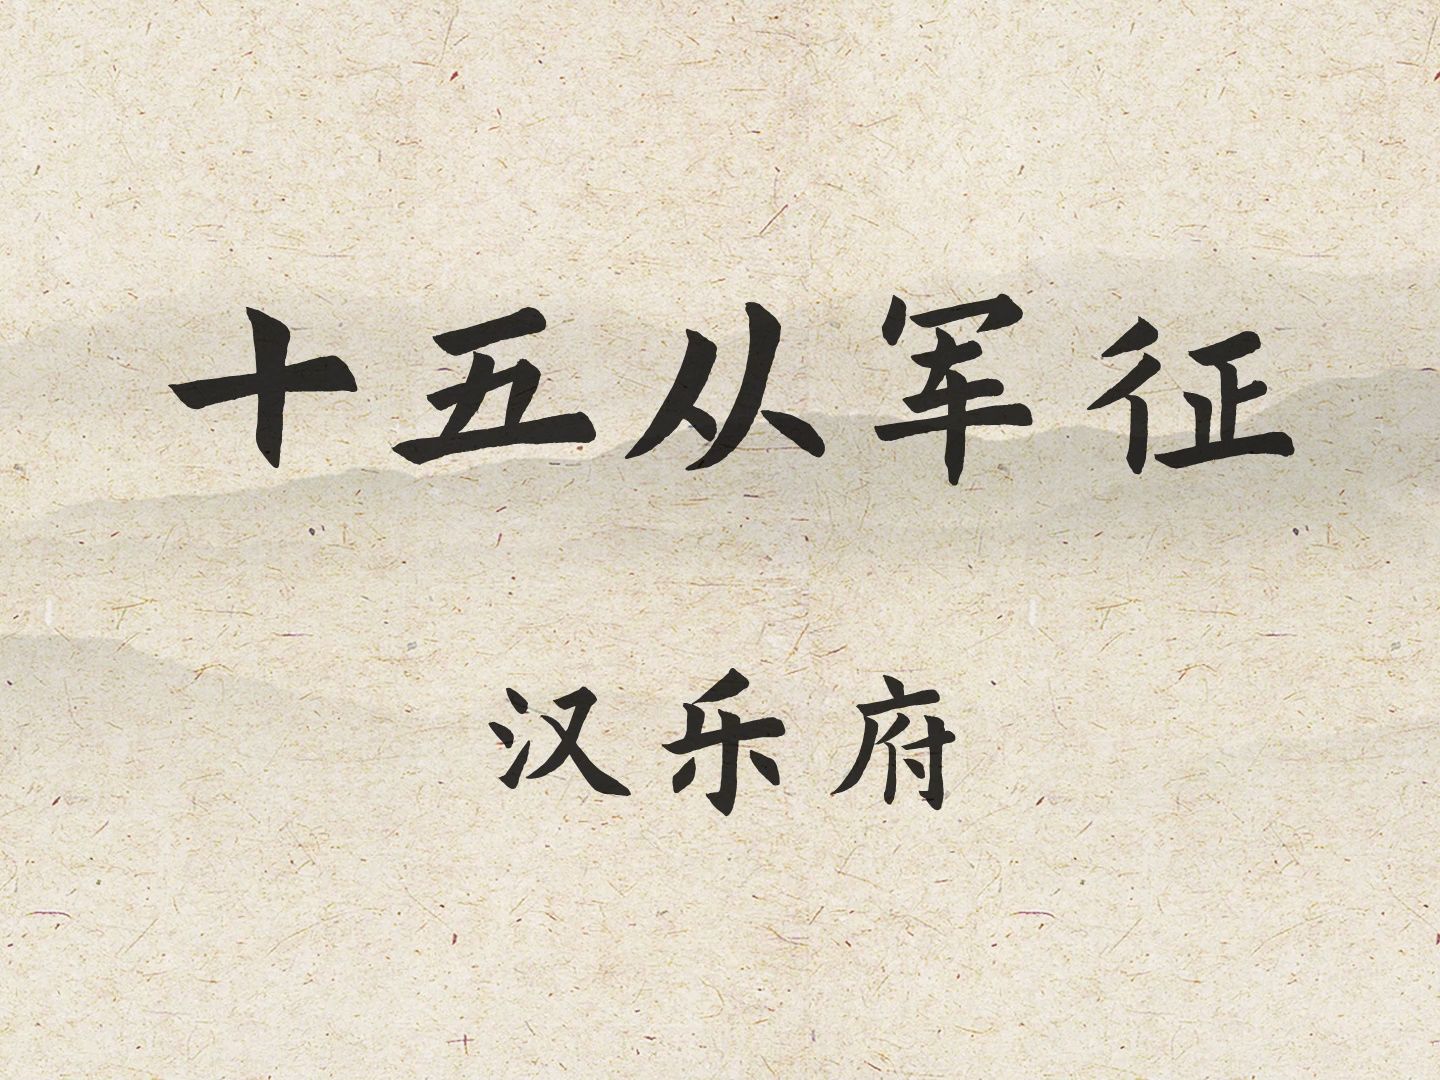 十五从军征
汉乐府